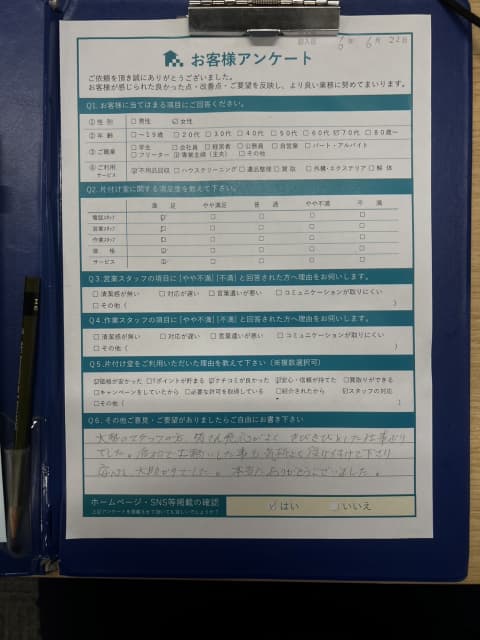 記入日 6年 6月 22日
お客様アンケート
ご依頼を頂き誠にありがとうございました。
お客様が感じられた良かった点・改善点・ご要望を反映し、より良い業務に努めてまいります。
Q1. お客様に当てはまる項目にご回答ください。
①性 別 □男性 ☑女性
②年 齢 □～19歳 □20代 □30代 □40代 □50代 □60代 ☑70代 □80歳～
③ご職業 □学生 □会社員 □経営者 □公務員 □自営業 □パート・アルバイト
□フリーター ☑専業主婦（主夫） □その他
④ご利用サービス ☑不用品回収 □ハウスクリーニング □遺品整理 □買取 □外構・エクステリア □解体
Q2. 片付け堂に関する満足度を教えて下さい。
満 足 やや満足 普 通 やや不満 不 満
電話スタッフ ☑ □ □ □ □
営業スタッフ ☑ □ □ □ □
作業スタッフ ☑ □ □ □ □
価 格 ☑ □ □ □ □
サービス ☑ □ □ □ □
Q3. 営業スタッフの項目に[やや不満][不満]と回答された方へ理由をお伺いします。
□清潔感が無い □対応が遅い □言葉遣いが悪い □コミュニケーションが取りにくい
□その他（ ）
Q4. 作業スタッフの項目に[やや不満][不満]と回答された方へ理由をお伺いします。
□清潔感が無い □対応が遅い □言葉遣いが悪い □コミュニケーションが取りにくい
□その他（ ）
Q5. 片付け堂をご利用いただいた理由を教えて下さい（※複数選択可）
☑価格が安かった □Tポイントが貯まる ☑クチコミが良かった ☑安心・信頼が持てた □買取りができる
□キャンペーンをしていたから □必要な許可を取得している □紹介されたから ☑スタッフの対応
□その他（ ）
Q6. その他ご意見・ご要望がありましたらご自由にお書き下さい
大勢のスタッフの方、皆さん感じがよく きびきびとした仕事ぶり
でした。 お願いした事も気持よく受け付けて下さり
大助かりでした。 本当にありがとうございました。
ホームページ・SNS等掲載の確認
上記アンケートを掲載させて頂いても宜しいでしょうか？
☑はい □いいえ